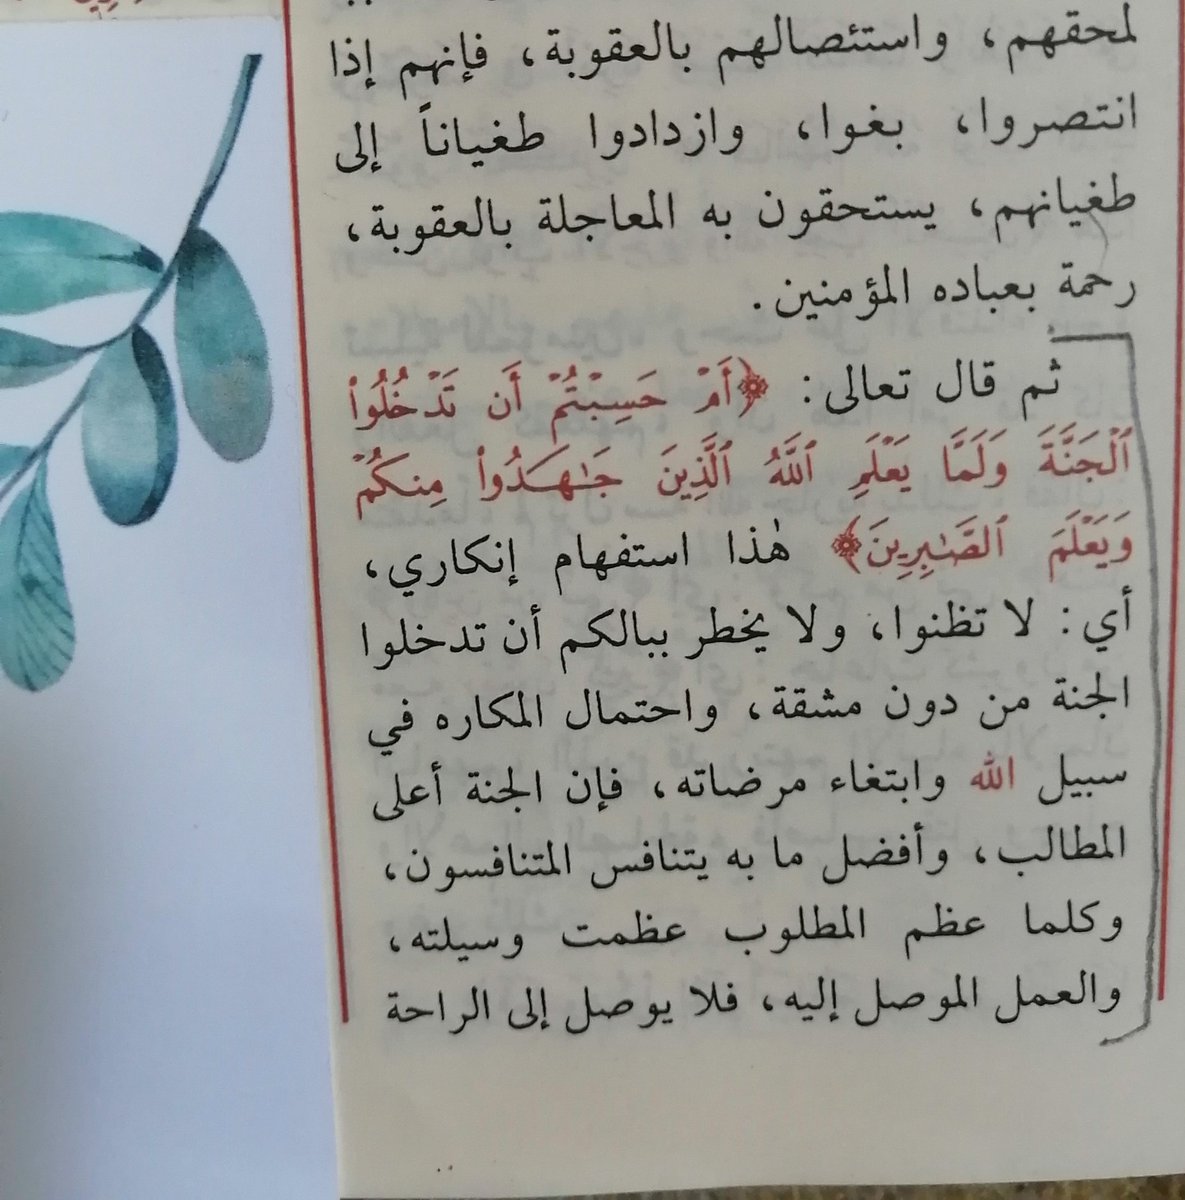 لمحقهم، واستئصالهم بالعقوبة، فإنهم إذا
انتصروا، بغوا، وازدادوا طغياناً إلى
طغيانهم، يستحقون به المعاجلة بالعقوبة،
رحمة بعباده المؤمنين.
ثم قال تعالى: ﴿أَمْ حَسِبْتُمْ أَن تَدْخُلُوا۟
ٱلْجَنَّةَ وَلَمَّا يَعْلَمِ ٱللَّهُ ٱلَّذِينَ جَـٰهَدُوا۟ مِنكُمْ
وَيَعْلَمَ ٱلصَّـٰبِرِينَ﴾ هٰذا استفهام إنكاري،
أي: لا تظنوا، ولا يخطر ببالكم أن تدخلوا
الجنة من دون مشقة، واحتمال المكاره في
سبيل الله وابتغاء مرضاته، فإن الجنة أعلى
المطالب، وأفضل ما به يتنافس المتنافسون،
وكلما عظم المطلوب عظمت وسيلته،
والعمل الموصل إليه، فلا يوصل إلى الراحة